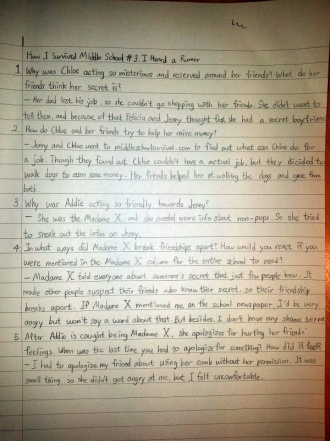 How I Survived Middle School #3. I Heard a Rumor
1. Why was Chloe acting so misterious and reserved around her friends? What do her
friends think her secret is?
- Her dad lost his job, so she couldn't go shopping with her friends. She didn't want to
tell them, and because of that Felicia and Jenny thought that she had a secret boyfriend.
2. How do Chloe and her friends try to help her raise money?
- Jenny and Chloe went to middleschoolsurvival.com to find out what can Chloe do for
a job. Though they found out Chloe couldn't have a actual job, but they decided to
walk dogs to earn some money. Her friends helped her at walking the dogs and gave them
bath.
3. Why was Addie acting so friendly towards Jenny?
- She was the Madame X, and she needed more info about non-pops. So she tried
to sneak out the infos on Jenny.
4. In what ways did Madame X break friendships apart? How would you react if you
were mentioned in the Madame X column for the entire school to read?
- Madame X told everyone about someone's secret that just few people know. It
made other people suspect their friends who know their secret, so their friendship
breaks apart. If Madame X mentioned me on the school newspaper, I'd be very
angry but won't say a word about that. But besides, I don't have any shame secret.
5. After Addie is caught being Madame X, she apologizes for hurting her friends'
feelings. When was the last time you had to apologize for something? How did it feel?
- I had to apologize my friend about using her comb without her permission. It was
small thing, so she didn't got angry at me, but I felt uncomfortable.